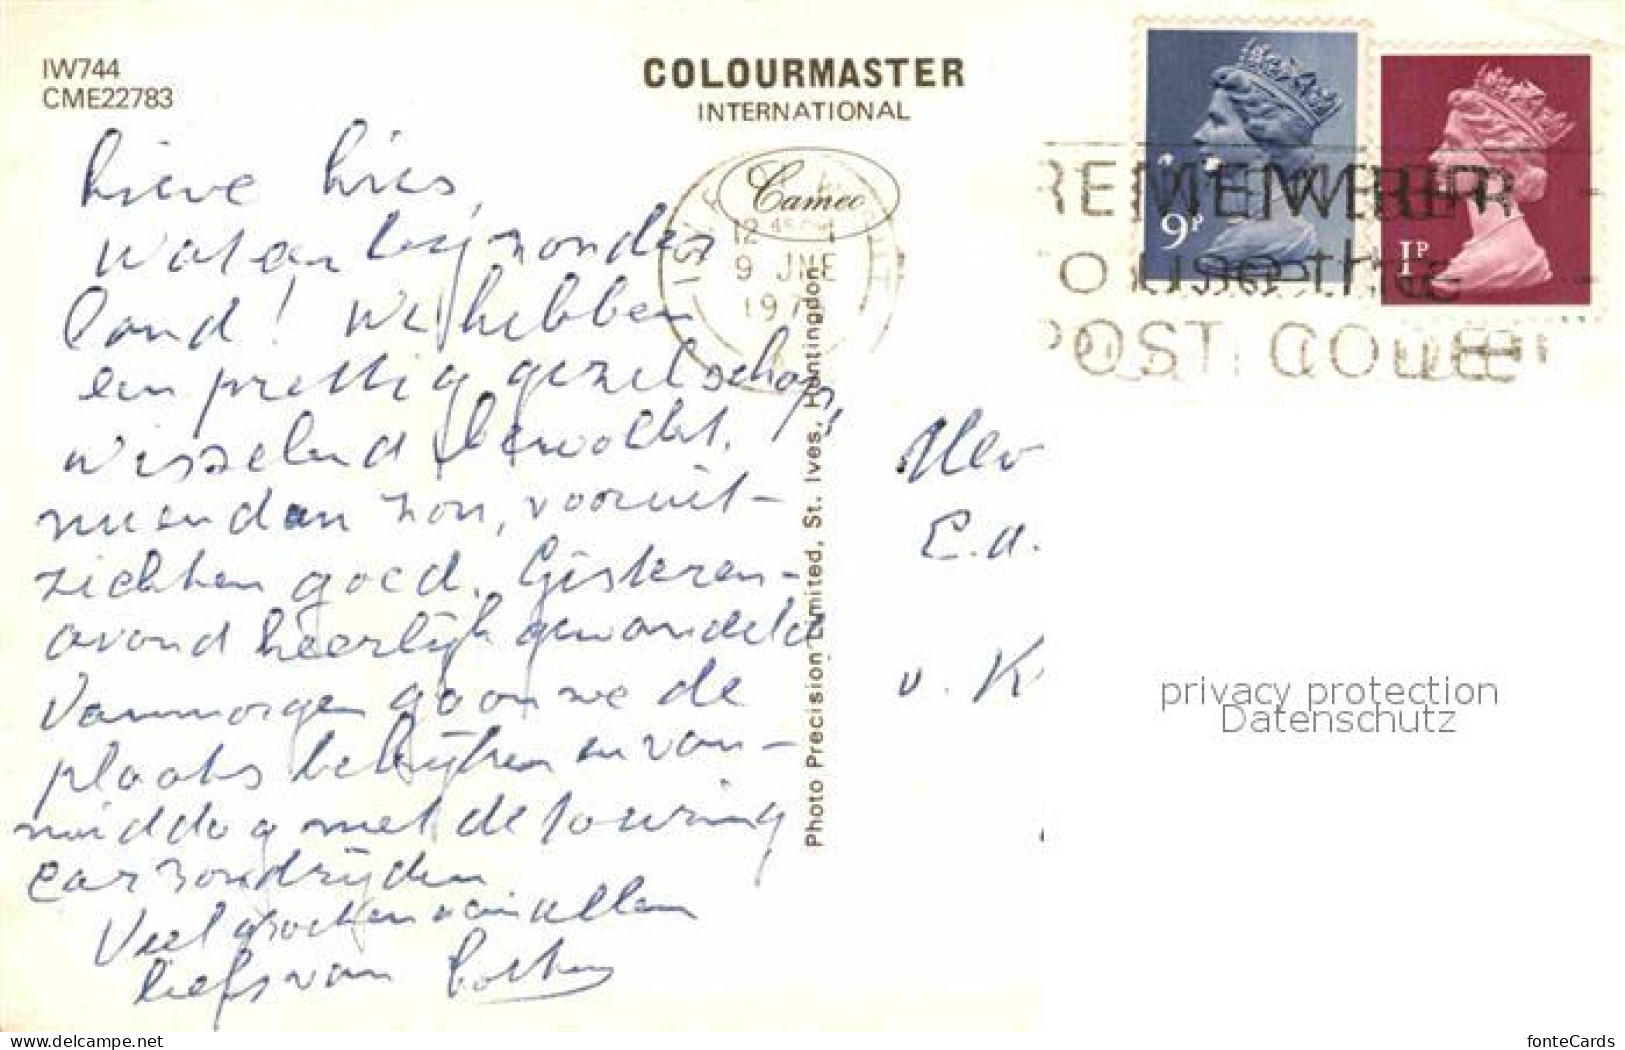 IW744
CME22783
COLOURMASTER
INTERNATIONAL
Cameo
12 45 PM
9 JNE
197
REMEMBER
TO use the
POST CODE
9P
1P
Lieve Lies,
Wat een bijzonder
land! We hebben
een prettig gezelschap,
wisselend bewolkt,
nu en dan zon, vooruit-
zichten goed. Gisteren-
avond heerlijk gewandeld
Vanmorgen gaan we de
plaats bekijken en van-
middag met de touring
car rondrijden
Veel groeten van allen
liefs van
Photo Precision Limited, St. Ives, Huntingdon
Mev
E.A.
v. K
privacy protection
Datenschutz
www.delcampe.net
fonteCards